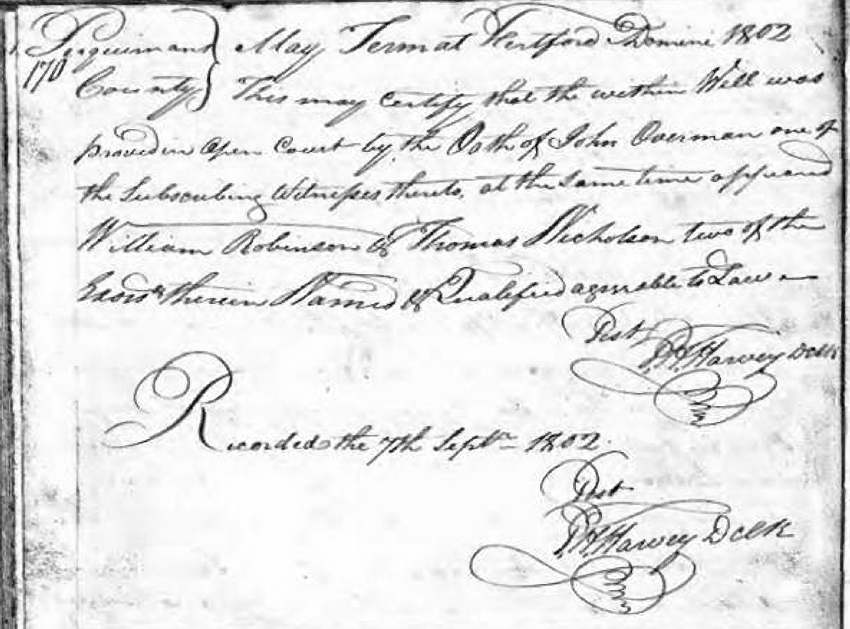 Perquimans } May Term at Hertford Domini 1802
170
County } This may certify that the within Will was
proved in Open Court by the Oath of John Overman one of
the Subscribing Witnesses thereto, at the same time appeared
William Robinson & Thomas Nicholson two of the
Exors therein Named & Qualified agreeable to Law
Test
P. H. Harvey D Clk
Recorded the 7th Septr 1802.
Test
P. H. Harvey D Clk